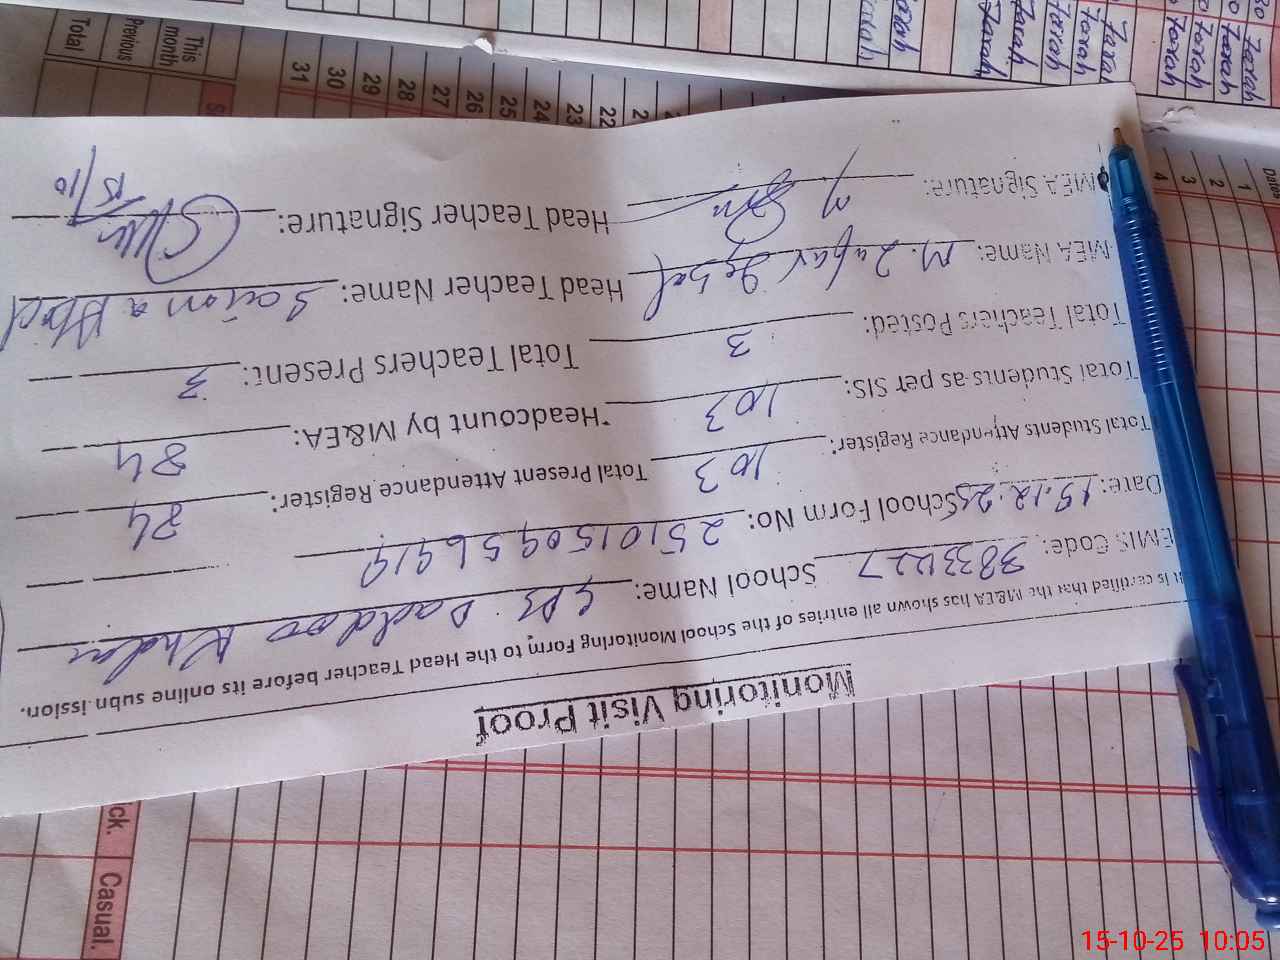 Monitoring Visit Proof
It is certified that the M&EA has shown all entries of the School Monitoring Form to the Head Teacher before its online submission.
EMIS Code: 3833427 School Name: GPS Daddoo Khelan
Date: School Form No: 2510150956919
Total Students Attendance Register: 103 Total Present Attendance Register: 84
Total Students as per SIS: 103 *Headcount by M&EA: 84
Total Teachers Posted: 3 Total Teachers Present: 3
MEA Name: M. Zafar Iqbal Head Teacher Name: Saima
MEA Signature: Head Teacher Signature: 15/10
This month
Previous
Total
31
30
29
28
27
26
25
24
23
22
Farah
Farah
Farah
Farah
Farah
Farah
Farah
Farah
1
2
3
4
Casual.
15-10-25 10:05